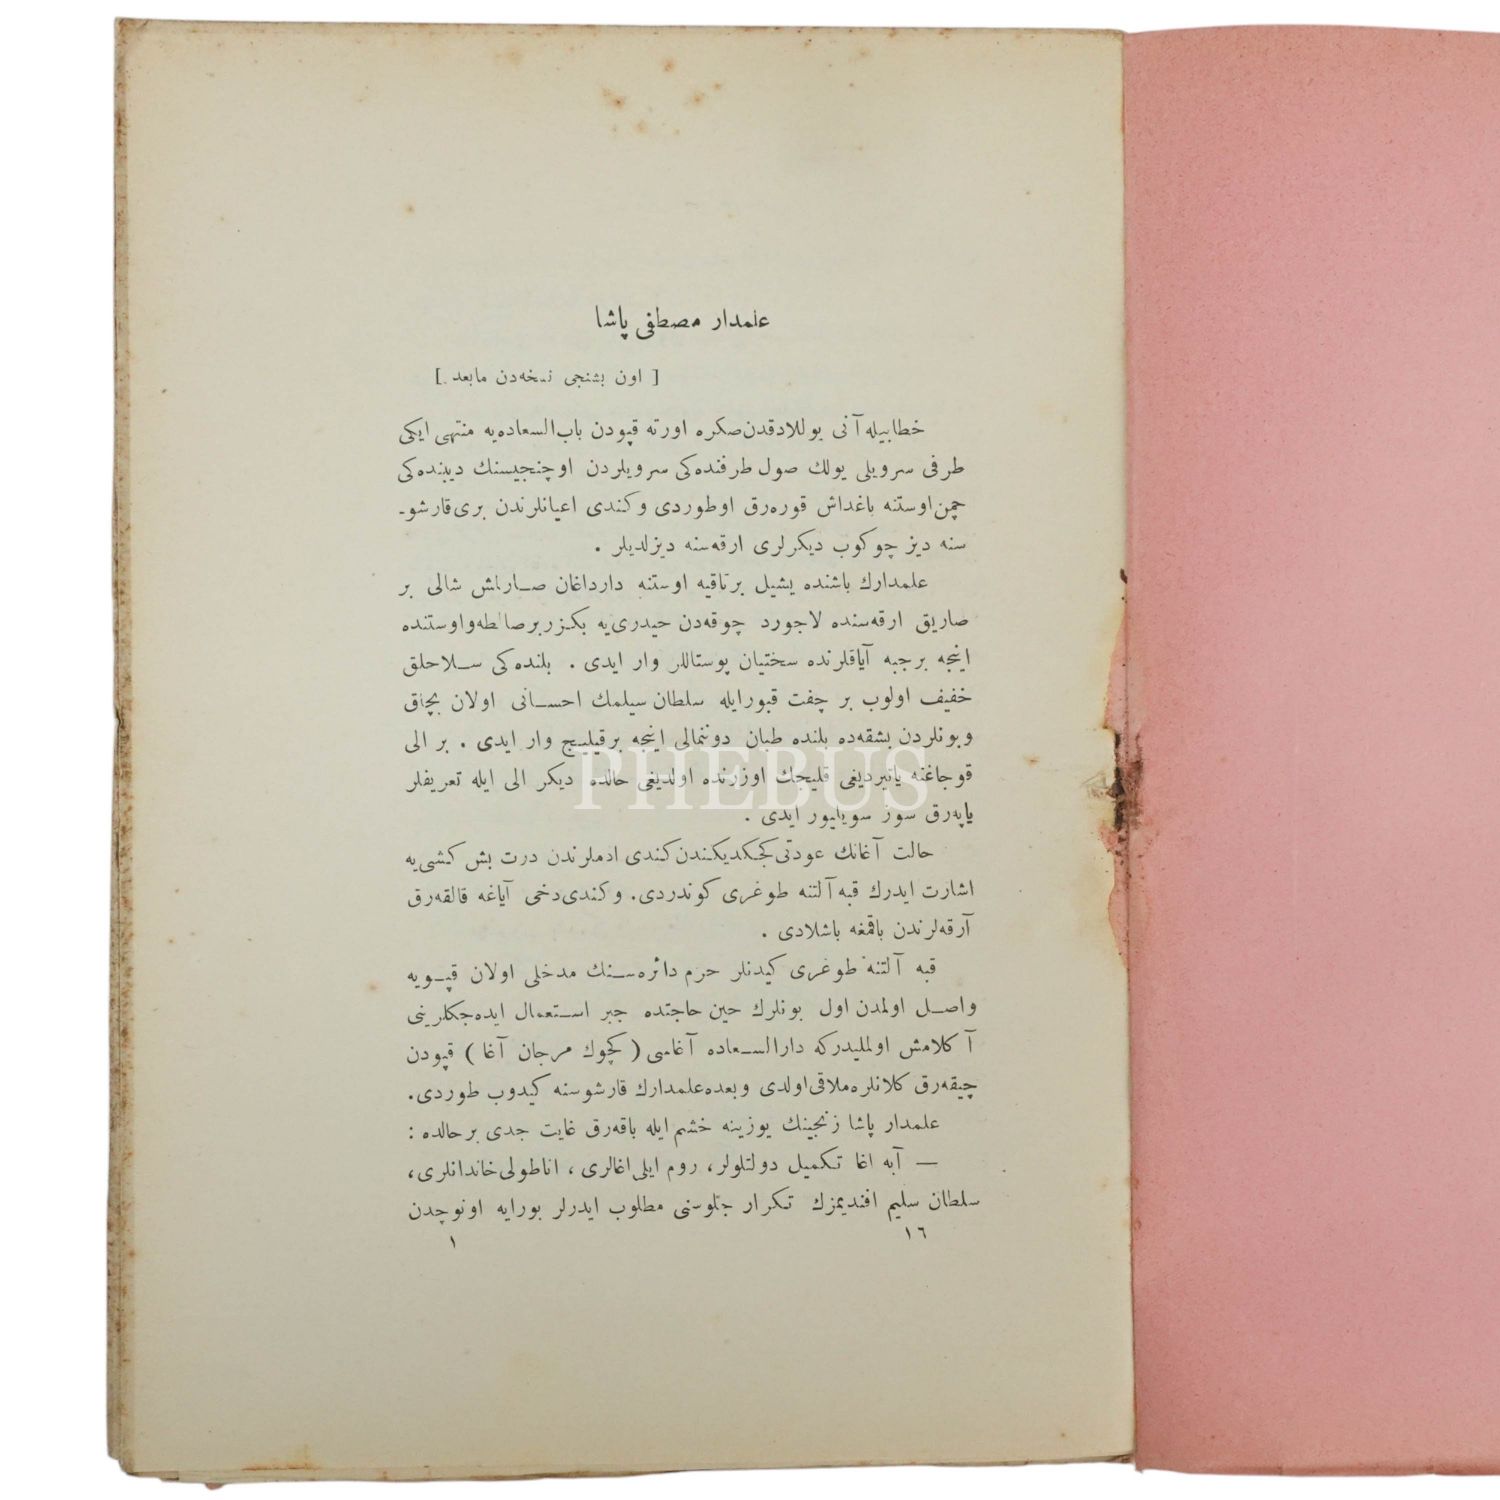 علمدار مصطفی پاشا
[ اون بشنجی نسخه‌دن مابعد ]
خطابیله آنی یوللادقدن صکره اورته قپودن باب السعاده‌یه منتهی ایکی
طرفی سرویلی یولك صول طرفنده‌کی سرویلردن اوچنجیسنك دیبنده‌کی
چمن اوستنه باغداش قوره‌رق اوطوردی و کندی اعیانلرندن بری قارشو-
سنه دیز چوکوب دیکرلری ارقه‌سنه دیزلدیلر .
علمدارك باشنده یشیل برتاقیه اوستنه دارداغان صاراش شالی بر
صاریق ارقه‌سنده لاجورد چوقه‌دن حیدری‌یه بکزر بر صالطه و اوستنده
اینجه برجبه آیاقلرنده سختیان پوستاللر وار ایدی . بلنده‌کی سلاحلق
خفیف اولوب بر چفت قبور ایله سلطان سیلمك احسانی اولان بچاق
و بونلردن بشقه‌ده بلنده طبان دوننمالی اینجه برقیلیج وار ایدی . بر الی
قوجاغنه یاتیردیغی قلیجك اوزرنده اولدیغی حالده دیکر الی ایله تعریفلر
یاپه‌رق سوز سویلیور ایدی .
حالت آغانك عودتی کجکدیکندن کندی ادملرندن درت بش کشی‌یه
اشارت ایدرك قبه آلتنه طوغری کوندردی. و کندی دخی آیاغه قالقه‌رق
آرقه‌لرندن باقمغه باشلادی .
قبه آلتنه طوغری کیدنلر حرم دائره‌سنك مدخلی اولان قپویه
واصل اولمدن اول بونلرك حین حاجتده جبر استعمال ایده‌جکلرینی
آکلامش اولملیدرکه دارالسعاده آغاسی ( کچوك مرجان آغا ) قپودن
چیقه‌رق کلانلره ملاقی اولدی و بعده علمدارك قارشوسنه کیدوب طوردی.
علمدار پاشا زنجینك یوزینه خشم ایله باقه‌رق غایت جدی بر حالده :
— آبه اغا تکمیل دولتلولر، روم ایلی اغالری ، اناطولی خاندانلری ،
سلطان سلیم افندیمزك تکرار جلوسنی مطلوب ایدرلر بورایه اونوچدن
١٦
١
PHEBUS